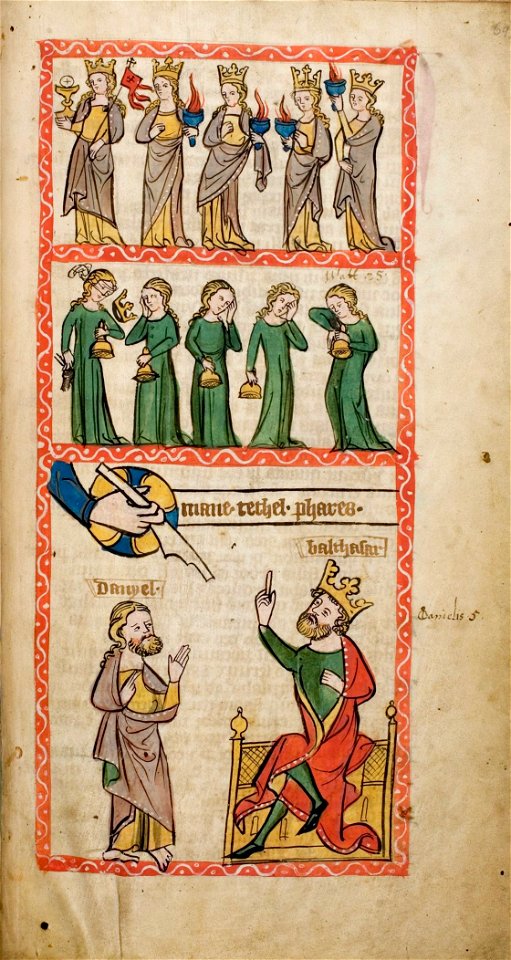 69
Matt 25
mane · techel · phares ·
balthasar
Danyel ·
Danielis 5.